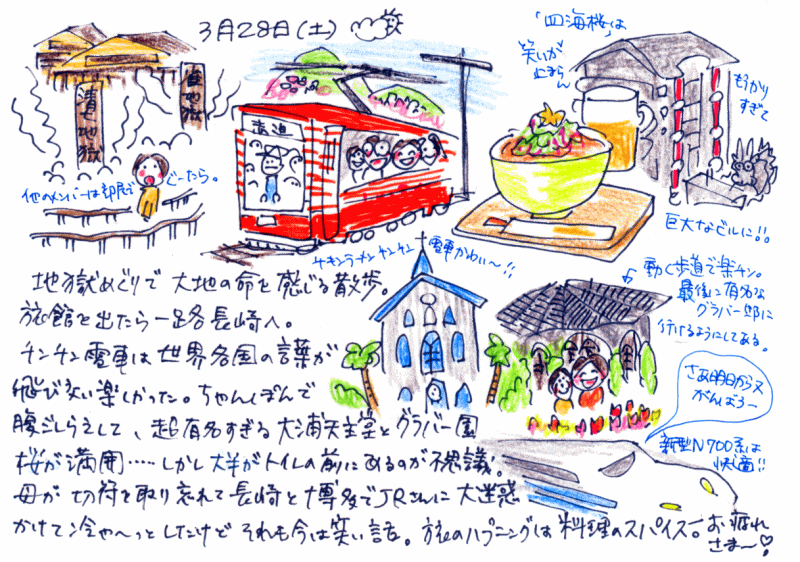 3月28日(土)
「四海楼」は
笑いが
止まらん
もうかり
すぎて
巨大なビルに!!
清七地獄
地獄
他のメンバーは部屋でぐーたら。
チャンラメンチンチン電車かわい〜!!
動く歩道で楽チン。
最後に有名な
グラバー邸に
行けるようにしてある。
地獄めぐりで大地の命を感じる散歩。
旅館を出たら一路長崎へ。
チンチン電車は世界各国の言葉が
飛び交い楽しかった。ちゃんぽんで
腹ごしらえして、超有名すぎる大浦天主堂とグラバー園
桜が満開……しかし大半がトイレの前にあるのが不思議。
母が切符を取り忘れて長崎と博多でJRさんに大迷惑
かけて冷や〜っとしたけどそれも今は笑い話。旅のハプニングは料理のスパイス。お疲れ
さま〜♡!
さあ明日から又
がんばろー
新型N700系は
快適!!